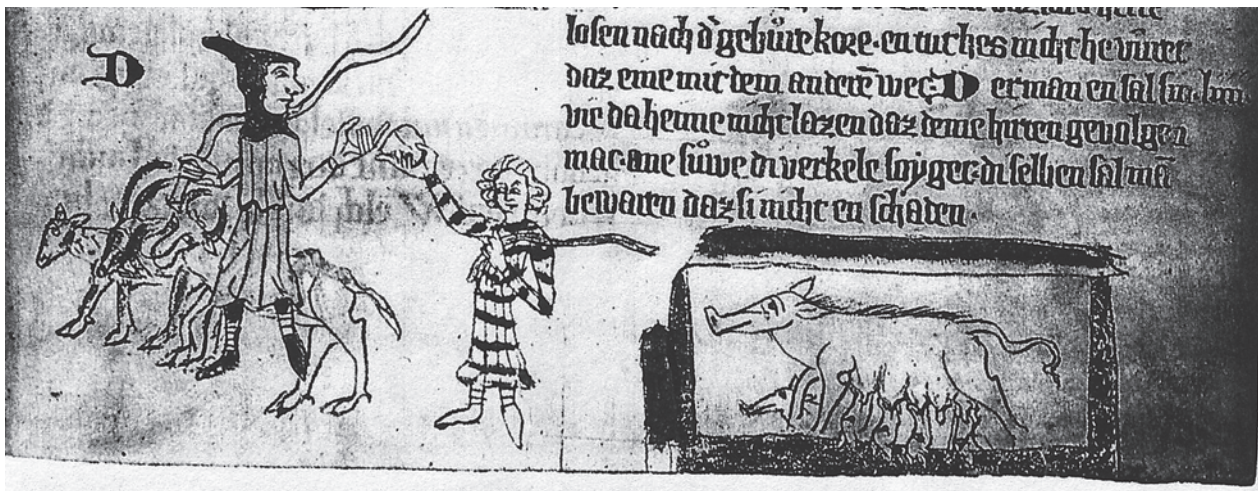 D
losen nach d̕ gebůrekore·en tut hes nicht he vůrter
daz eine mit dem anderē wec· D er man en sal sin
vie da heime nicht lazen daz deme hirten gevolgen
mac·ane sůwe di verkele soyget·di selben sal mā
bewaren daz si nicht en schaden·